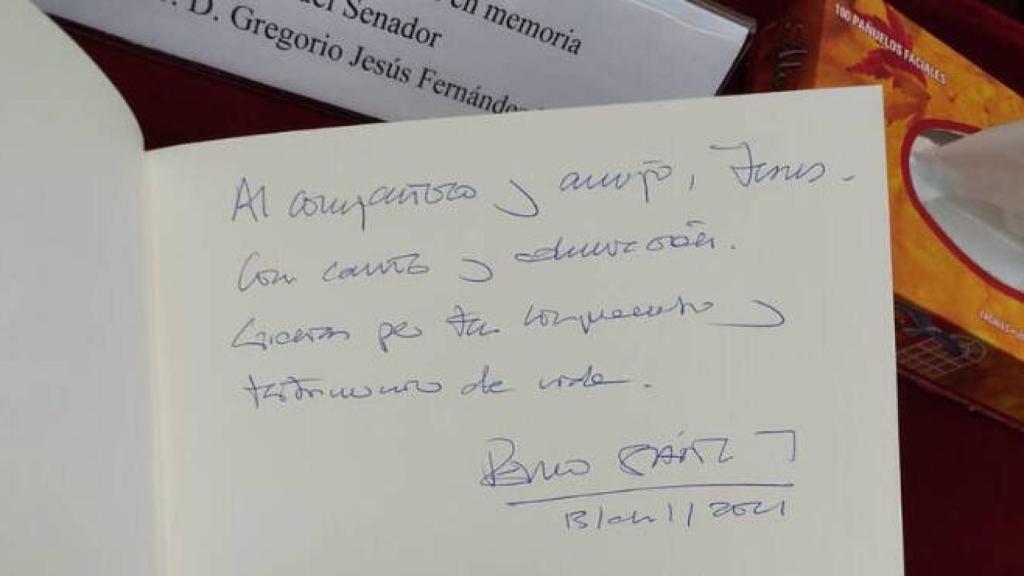 en memoria
del Senador
. D. Gregorio Jesús Fernández
100 PAÑUELOS FACIALES
Al compañero y amigo, Jesús.
Con cariño y admiración.
Gracias por tu compromiso y
testimonio de vida.
13/abril/2021